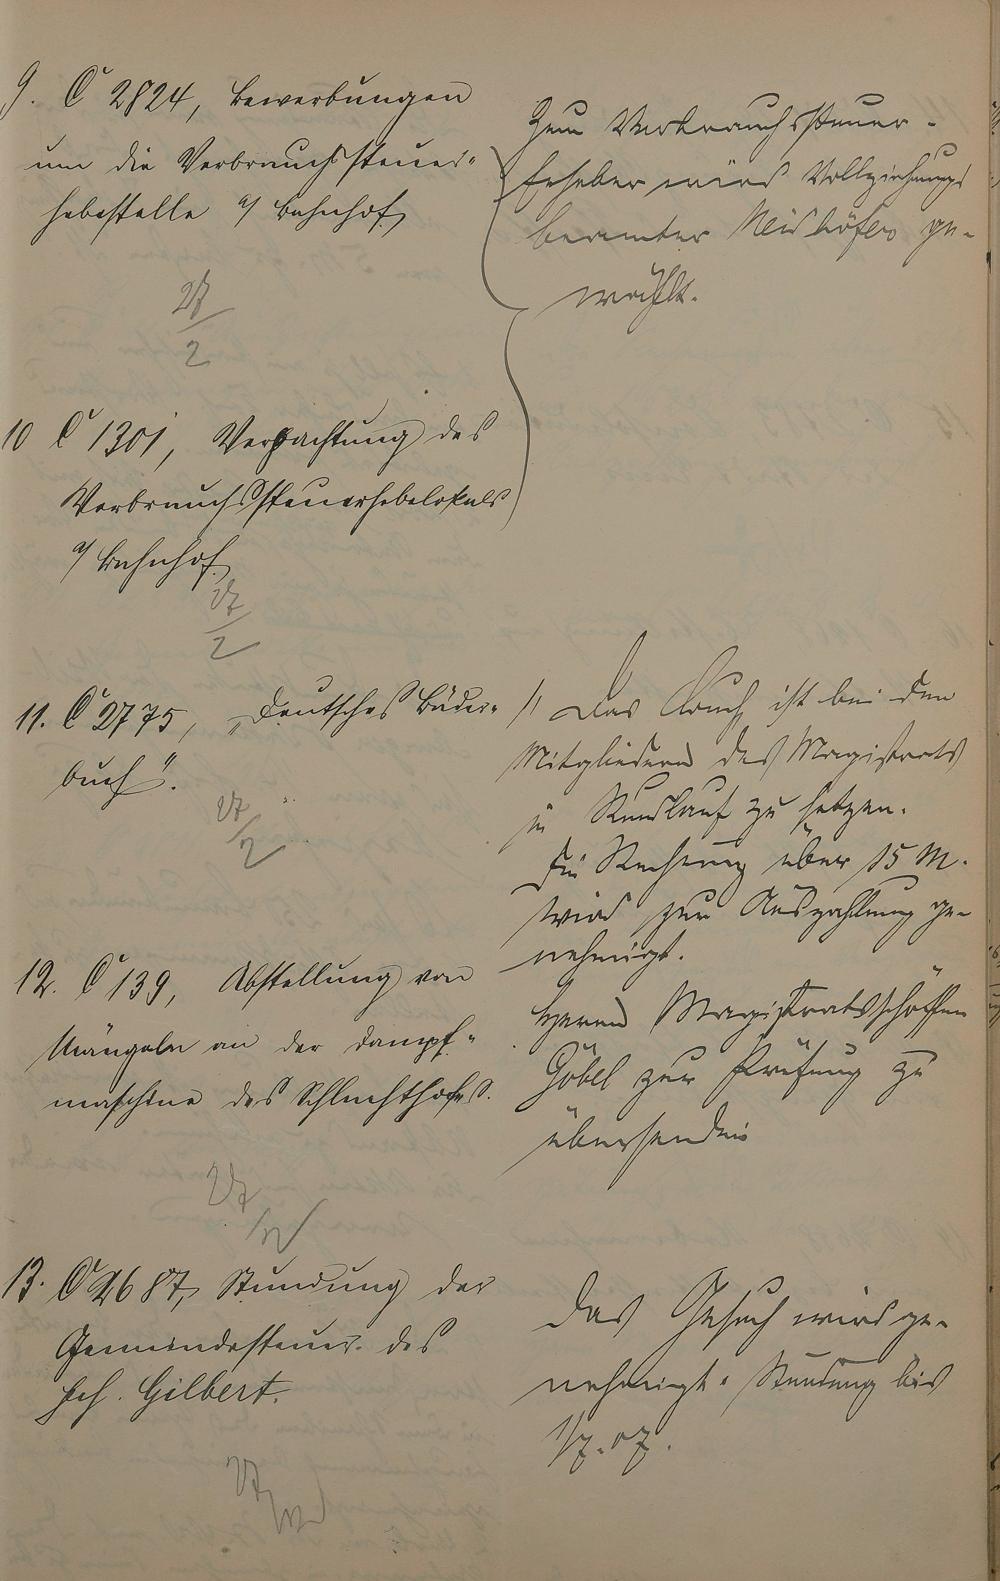 9. C 2824, Bewerbungen
um die Verbrauchssteuer-
hebestelle a/ Bahnhof
27/2
Zum Verbrauchssteuer-
Erheber wird Vollziehungs
beamter ge-
wählt.
10 C 1301, Verpachtung des
Verbrauchssteuerhebelokals
a/ Bahnhof
27/2
11. C 2775, „Deutsches Bäder-
buch".
27/2
1/ Das Buch ist bei den
Mitgliedern des Magistrats
in Rundlauf zu setzen.
Die Rechnung über 15 M.
wird zur Auszahlung ge-
nehmigt.
12. C 139, Abstellung von
Mängeln an der Dampf-
maschine des Schlachthofes.
27/2
Herrn Magistratsschöffen
Göbel zur Prüfung zu
übersenden
13. C 2687, Stundung der
Gemeindesteuer des
Gilbert.
27/2
Das Gesuch wird ge-
nehmigt. Stundung bis
1/7.07.